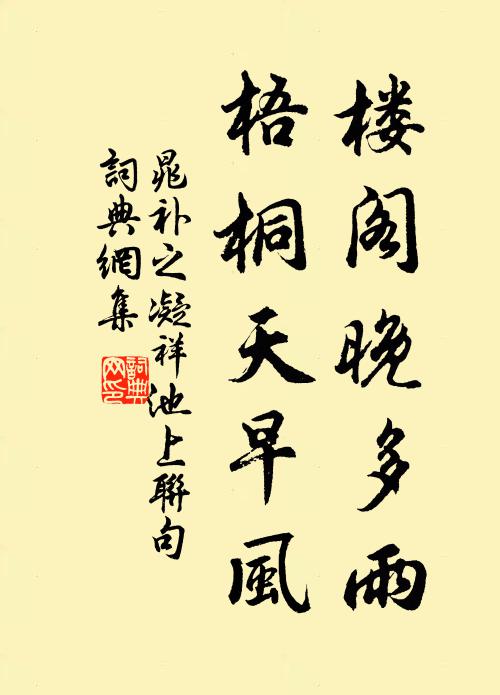 楼阁晚多雨
梧桐天早風
晁补之凝祥池上聯句
詞典網集
詞典网印